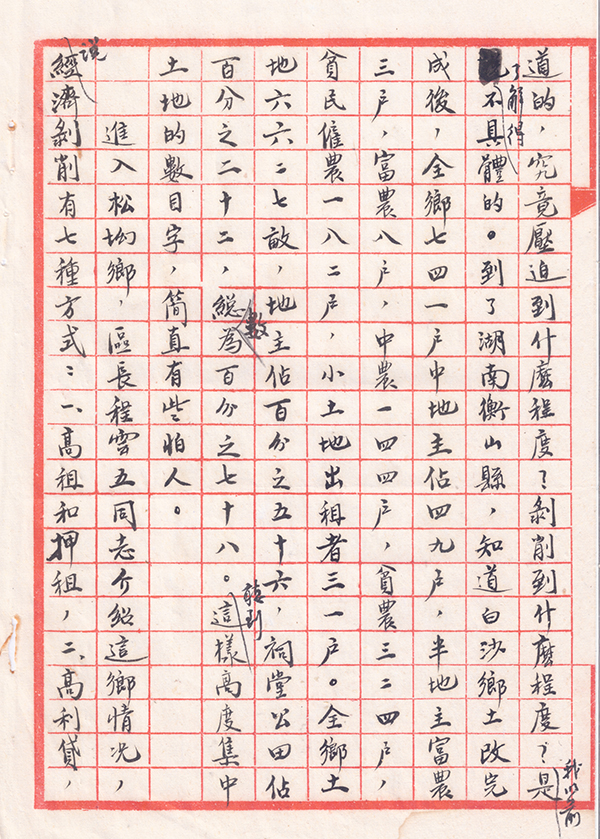 道的，究竟壓迫到什麼程度？剝削到什麼程度？是我以前
了解得不具體的。到了湖南衡山縣，知道白沙鄉土改完
成後，全鄉七四一戶中地主佔四九戶，半地主富農
三戶，富農八戶，中農一四四戶，貧農三二四戶，
貧民僱農一八二戶，小土地出租者三一戶。全鄉土
地六六二七畝，地主佔百分之五十六，祠堂公田佔
百分之二十二，總數為百分之七十八。這樣高度集中
土地的數目字，簡直有些怕人。
進入松坳鄉，區長程雲五同志介紹這鄉情况，
说經濟剝削有七種方式：一、高租和押租，二、高利貸，